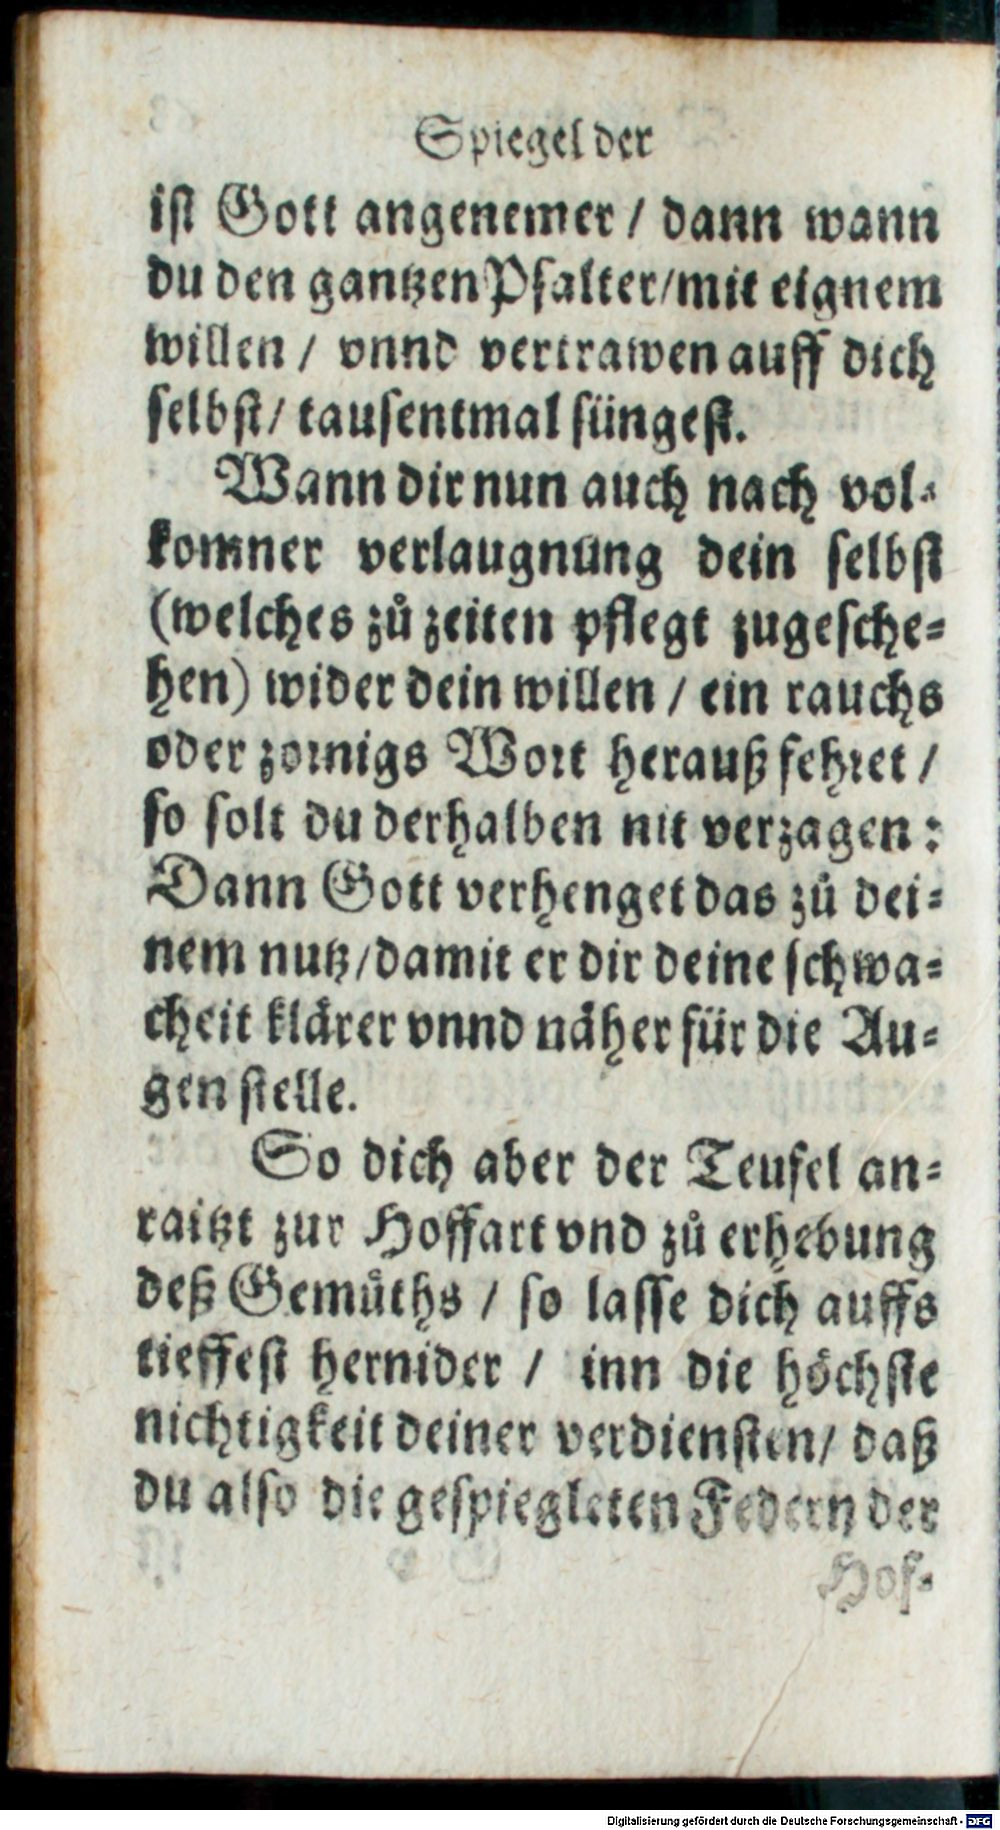 Spiegel der
ist Gott angenemer / dann wann
du den gantzen Psalter/mit eignem
willen / vnnd vertrawen auff dich
selbst/ tausentmal süngest.
Wann dir nun auch nach vol-
komner verlaugnung dein selbst
(welches zů zeiten pflegt zugesche-
hen) wider dein willen / ein rauchs
oder zornigs Wort herauß fehret /
so solt du derhalben nit verzagen:
Dann Gott verhenget das zů dei-
nem nutz/damit er dir deine schwa-
cheit klärer vnnd näher für die Au-
gen stelle.
So dich aber der Teufel an-
raitzt zur Hoffart vnd zů erhebung
deß Gemůths / so lasse dich auffs
tieffest hernider / inn die höchste
nichtigkeit deiner verdiensten/ daß
du also die gespiegleten Federn der
Hof-
Digitalisierung gefördert durch die Deutsche Forschungsgemeinschaft - DFG